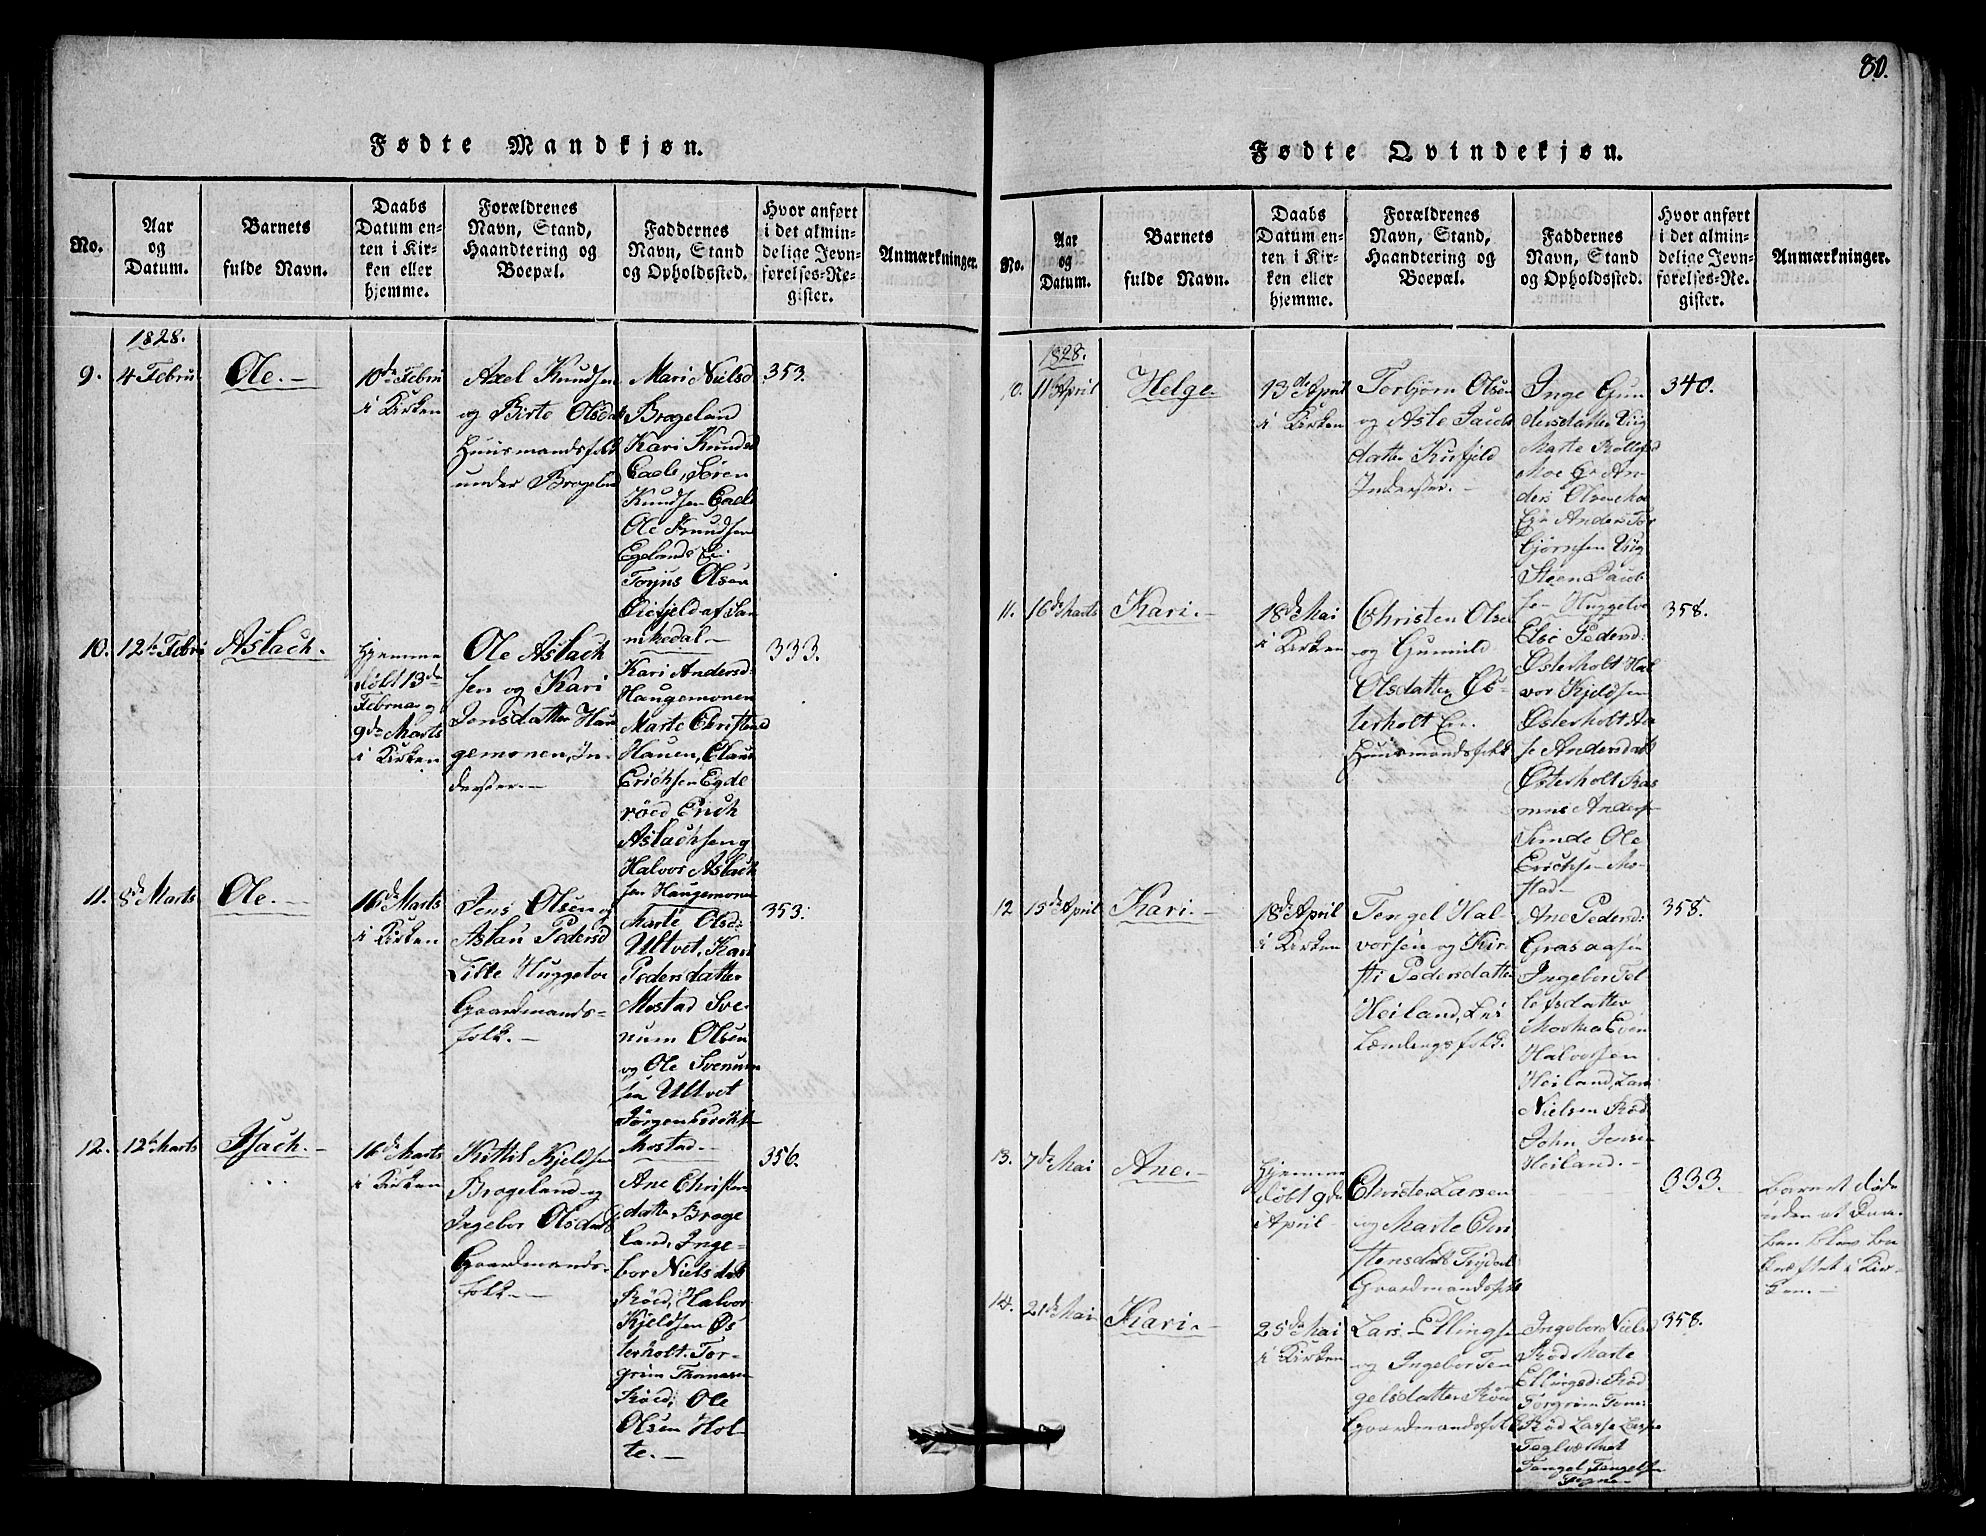 80.
Fødte Mandkjøn.
No.
Aar
og
Datum.
Barnets
fulde Navn.
Daabs
Datum en-
ten i Kir-
ken eller
hjemme.
Forældrenes
Navn, Stand,
Haandtering og
Boepæl.
Faddernes
Navn, Stand
og Opholdssted.
Hvor anført
i det almin-
delige Jevn-
førelses-Re-
gister.
Anmærkninger.
1828.
9.
4 Febru
Ole.-
10de Febru
i Kirken
Axel Knudsen
og Birte Olsdat
Huusmandsfolk
under Brogeland
Mari Nielsd
Brogeland
Kari Knudsd
Søren
Knudsen
Ole Knudsen
Egelands Ei
Torjus Olsen
af San
nikedal-
353.
10.
12te Febru
Aslach.
Hjemme
døbt 13de
Februar og
9de Marts
i Kirken
Ole Aslach
sen og Kari
Jensdatter Hau
gemonen, In-
derster.-
Kari Andersd
Haugemonen
Marte Christensd
Hauen, Claus
Erichsen Egde
röed, Erich
Aslachsen og
Halvor Aslach
sen Haugemonen
333.
11.
8de Marts
Ole.-
16de Marts
i Kirken
Jens Olsen og
Aslau Pedersd
Lille Huggetve
Gaardmands-
folk.-
Marte Olsd:
Ultvet, Kari
Pedersdatter
Mostad Sve-
num Olsen
og Ole Svenum
sen Ultvet
Jörgen
Mostad.-
353.
12.
12te Marts
Isach.-
16de Marts
i Kirken
Kittil Kjeldsen
Brogeland og
Ingebor Olsdat
Gaardmands-
folk.-
Ane Christen
datter Broge
land, Inge-
bor Nielsdat
Röed, Halvor
Kjeldsen Øs
terholt. Tor-
grim Thomasen
Röed, Ole
Olsen Hol-
te.-
356.
Fødte Qvindekjøn.
No.
Aar
og
Datum.
Barnets
fulde Navn.
Daabs
Datum en-
ten i Kir-
ken eller
hjemme.
Forældrenes
Navn, Stand,
Haandtering og
Boepæl.
Faddernes
Navn, Stand
og Opholdssted.
Hvor anført
i det almin-
delige Jevn-
førelses-Re-
gister.
Anmærkninger.
1828.
10.
11te April
Helge.
13de April
i Kirken
Torbjörn Olsen
og Asle Jacobs
datter
Inderster.-
Inge Gun
dersdatter
Marte
Moe An-
ders Olsen Moe
Anders Tor
björnsen
Steen Jacob
sen Huggetve
340.
11.
16de Marts
Kari.-
18de Mai
i Kirken
Christen Olsen
og Gunnild
Olsdatter Øs-
terholt Ei.
Huusmandsfolk
Else Pedersd:
Østerholt Hal
vor Kjeldsen
Østerholt Aa
se Andersdatt
Østerholt Ras
mus Andersen
Simde Ole
Erichsen Mo-
stad-
358.
12
15de April
Kari.-
18de April
i Kirken
Tengel Hal-
vorsen og Kir-
sti Pedersdatter
Heiland, Lei
Lændingsfolk.
Ane Pedersd:
Grasaasen
Ingebor Tel
lefsdatter
Even
Halvorsen
Heiland, Lars
Nielsen Röd
John Jensen
Heiland.-
358.
13.
7de Mai
Ane.-
Hjemme
døbt 9de
April-
Christen Larsen
og Marte Chri
stensdatt
Gaardmandsfolk
333.
Barnet døde
inden at Daa-
ben blev be
kræftet i Kir-
ken.-
14.
21de Mai
Kari.-
25de Mai
i Kirken
Lars Ellingsen
og Ingebor Ten
gelsdatter Röed
Gaardmandsfolk
Ingebor Nielsd
Röd Marte
Ellingsd: Röd
Torgrim
Röd Lasse
Tengel Tengelsen
358.